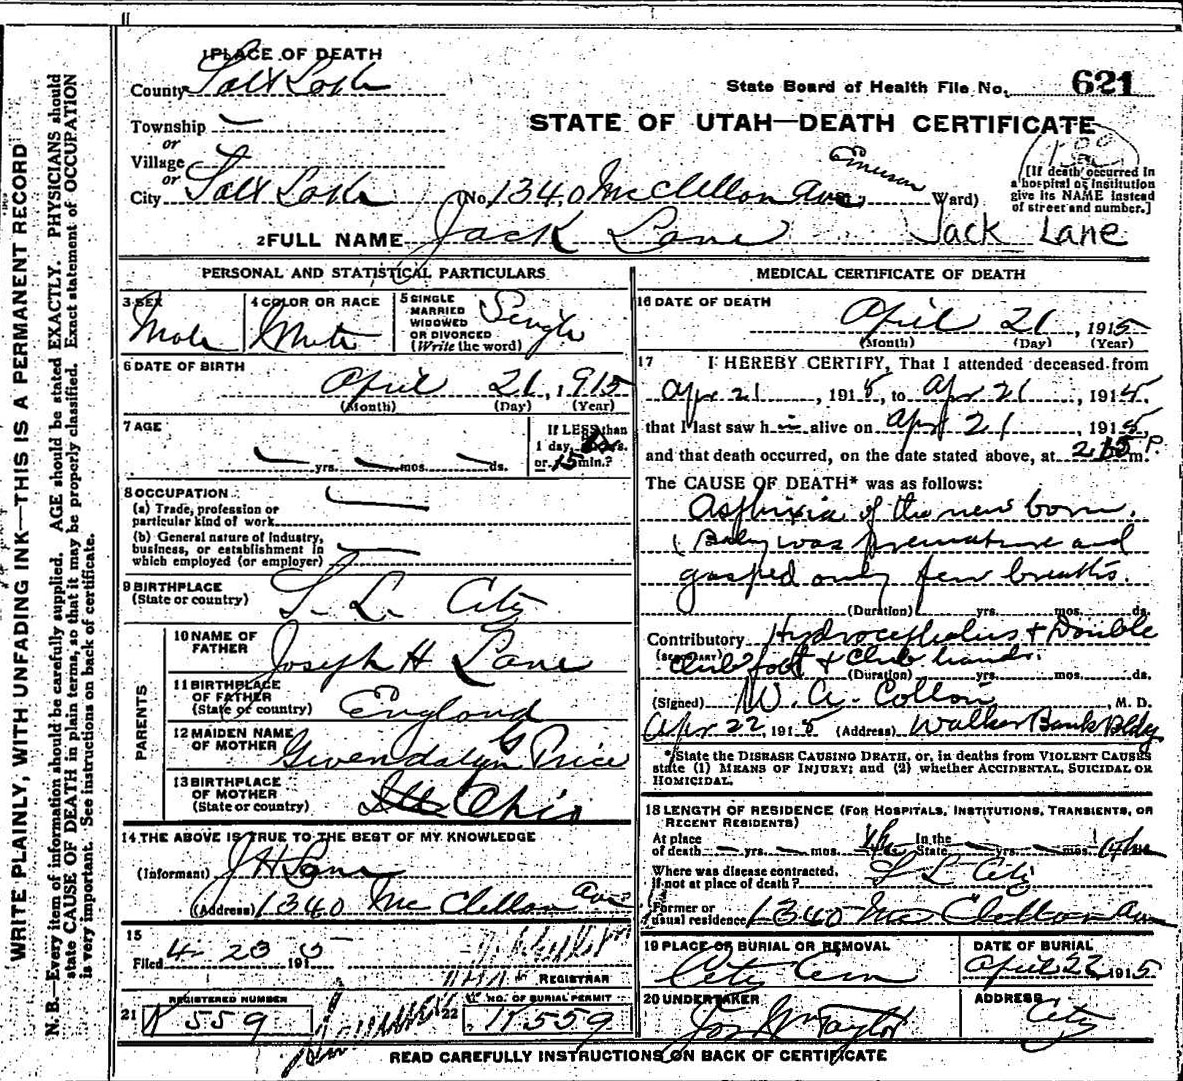 WRITE PLAINLY, WITH UNFADING INK—THIS IS A PERMANENT RECORD
N. B.—Every item of information should be carefully supplied. AGE should be stated EXACTLY. PHYSICIANS should
state CAUSE OF DEATH in plain terms, so that it may be properly classified. Exact statement of OCCUPATION
is very important. See instructions on back of certificate.
1 PLACE OF DEATH
County Salt Lake
State Board of Health File No. 621
Township
or
Village
or
City Salt Lake
STATE OF UTAH—DEATH CERTIFICATE
(No. 1340 McClellan Ave Emerson Ward)
[If death occurred in
a hospital or institution
give its NAME instead
of street and number.]
2 FULL NAME Jack Lane Jack Lane
PERSONAL AND STATISTICAL PARTICULARS
3 SEX
Male
4 COLOR OR RACE
White
5 SINGLE
MARRIED
WIDOWED
OR DIVORCED
(Write the word)
Single
6 DATE OF BIRTH
April 21, 1915
(Month) (Day) (Year)
7 AGE
yrs. mos. ds.
If LESS than
1 day, hrs.
or 15 min.?
8 OCCUPATION
(a) Trade, profession or
particular kind of work
(b) General nature of industry,
business, or establishment in
which employed (or employer)
9 BIRTHPLACE
(State or country) S. L. City
PARENTS
10 NAME OF
FATHER Joseph H Lane
11 BIRTHPLACE
OF FATHER
(State or country) England
12 MAIDEN NAME
OF MOTHER Gwendolyn G Price
13 BIRTHPLACE
OF MOTHER
(State or country) Ohio
14 THE ABOVE IS TRUE TO THE BEST OF MY KNOWLEDGE
(Informant) J H Lane
(Address) 1340 Mc Clellan Ave
15
Filed 4-23 1915
REGISTRAR
21 REGISTERED NUMBER
K 559
22 NO. OF BURIAL PERMIT
K 559
MEDICAL CERTIFICATE OF DEATH
16 DATE OF DEATH
April 21, 1915
(Month) (Day) (Year)
17 I HEREBY CERTIFY, That I attended deceased from
Apr 21, 1915, to Apr 21, 1915,
that I last saw h im alive on Apr 21 1915
and that death occurred, on the date stated above, at 2 15 P. m.
The CAUSE OF DEATH* was as follows:
Asphixia of the new born.
(Baby was premature and
gasped only few breaths.
(Duration) yrs. mos. ds.
Contributory Hydrocephalus & Double
(SECONDARY) club foot & club hands.
(Duration) yrs. mos. ds.
(Signed) W. A. Colton, M. D.
Apr 22, 1915 (Address) Walker Bank Bldg
*State the DISEASE CAUSING DEATH, or, in deaths from VIOLENT CAUSES
state (1) MEANS OF INJURY; and (2) whether ACCIDENTAL, SUICIDAL OR
HOMICIDAL.
18 LENGTH OF RESIDENCE (FOR HOSPITALS, INSTITUTIONS, TRANSIENTS, OR
RECENT RESIDENTS)
At place
of death yrs. mos. ds. In the
State yrs. mos.
Where was disease contracted,
if not at place of death? S L City
Former or
usual residence 1340 Mc Clellan Ave
19 PLACE OF BURIAL OR REMOVAL
City Cem
DATE OF BURIAL
April 22 1915
20 UNDERTAKER
Jos Wm Taylor
ADDRESS
City
READ CAREFULLY INSTRUCTIONS ON BACK OF CERTIFICATE